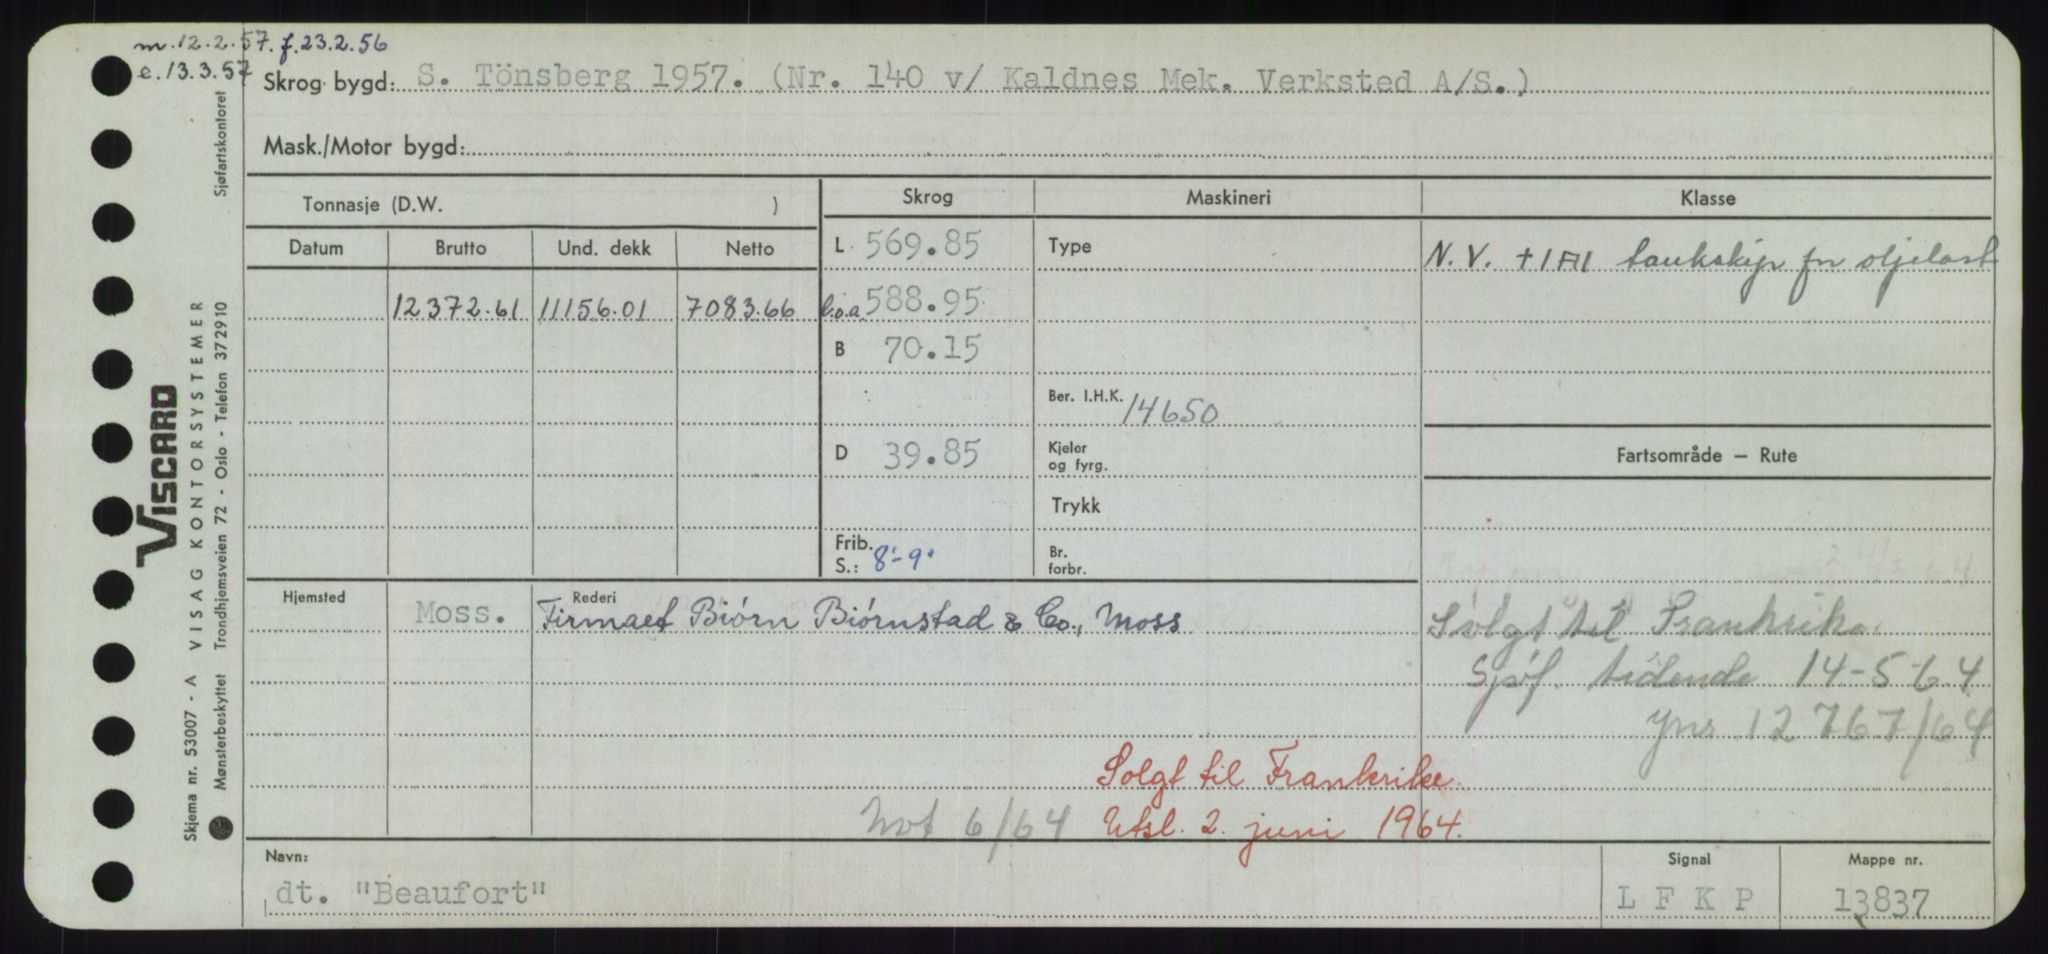 m.12.2.57. f.23.2.56
e.13.3.57
Skrog bygd: S. Tönsberg 1957. (Nr. 140 v/ Kaldnes Mek. Verksted A/S.)
Mask./Motor bygd:
Tonnasje (D.W. )
Datum Brutto Und. dekk Netto
12372.61 11156.01 7083.66
Skrog
L 569.85
l.o.a. 588.95
B 70.15
D 39.85
Frib.
S.: 8'-9"
Maskineri
Type
Ber. I.H.K. 14650
Kjeler
og fyrg.
Trykk
Br.
forbr.
Klasse
N.V. +1A1 tankskip for oljelast
Fartsområde — Rute
Solgt til Frankrike
Sjøf. tidende 14-5-64
12767/64
Hjemsted Moss.
Rederi
Firmaet Biørn Biørnstad & Co., Moss
Solgt til Frankrike.
Not 6/64 Utsl. 2. juni 1964.
Navn:
dt. "Beaufort"
Signal
L F K P
Mappe nr.
13837
VISCARD
Skjema nr. 53007 - A VISAG KONTORSYSTEMER
Mønsterbeskyttet Trondhjemsveien 72 - Oslo - Telefon 372910 Sjøfartskontoret